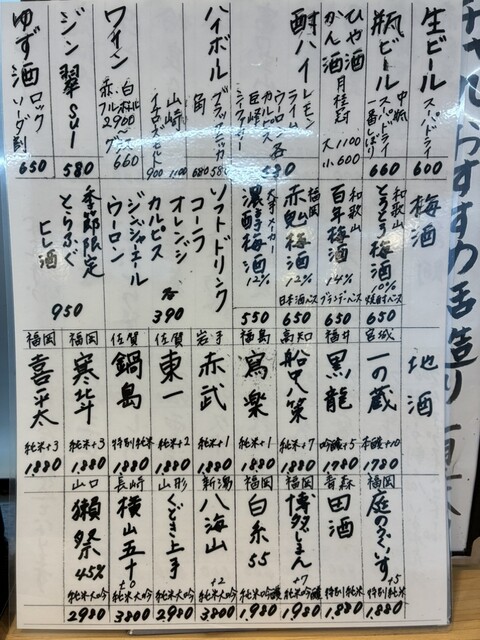 生ビール スーパードライ 600
瓶ビール 中瓶 スーパードライ 一番しぼり 660
ひや酒
かん酒 月桂冠 大1100 小600
酎ハイ レモン ライム ウーロン カルピス 巨峰 各580
ハイボール 角 580 680
山崎 1100
900
ワイン 白ボトル2900 赤フル グラス660
ジン翠SUI 580
ゆず酒 ロック ソーダ割 650
梅酒
和歌山 とろとろ梅酒 10% 焼酎ベース 650
和歌山 百年梅酒 14% ブランデーベース 650
福岡 赤鬼梅酒 12% 日本酒ベース 650
大手メーカー 濃醇梅酒 12% 550
ソフトドリンク
コーラ
オレンジ
カルピス
ジンジャエール
ウーロン
各390
季節限定
とらふぐ
ヒレ酒
950
地酒
宮城 一の蔵 本醸+10 1780
福井 黒龍 吟醸+5 1780
高知 船中八策 純米+7 1,880
福島 寫楽 純米+1 1,880
岩手 赤武 純米+1 1,880
佐賀 東一 純米+2 1,880
佐賀 鍋島 特別純米 1,880
福岡 寒北斗 純米+3 1,880
福岡 喜平太 純米+3 1,880
福岡 庭のうぐいす 特別純米+5 1,880
青森 田酒 特別純米 1,880
福岡 博多じまん 純米吟醸+7 1,980
福岡 白糸55 純米吟醸 1,980
新潟 八海山 純米大吟+2 3,800
山形 くどき上手 純米大吟 2,980
長崎 横山五十 純米大吟±0 3800
山口 獺祭45% 純米大吟 2980